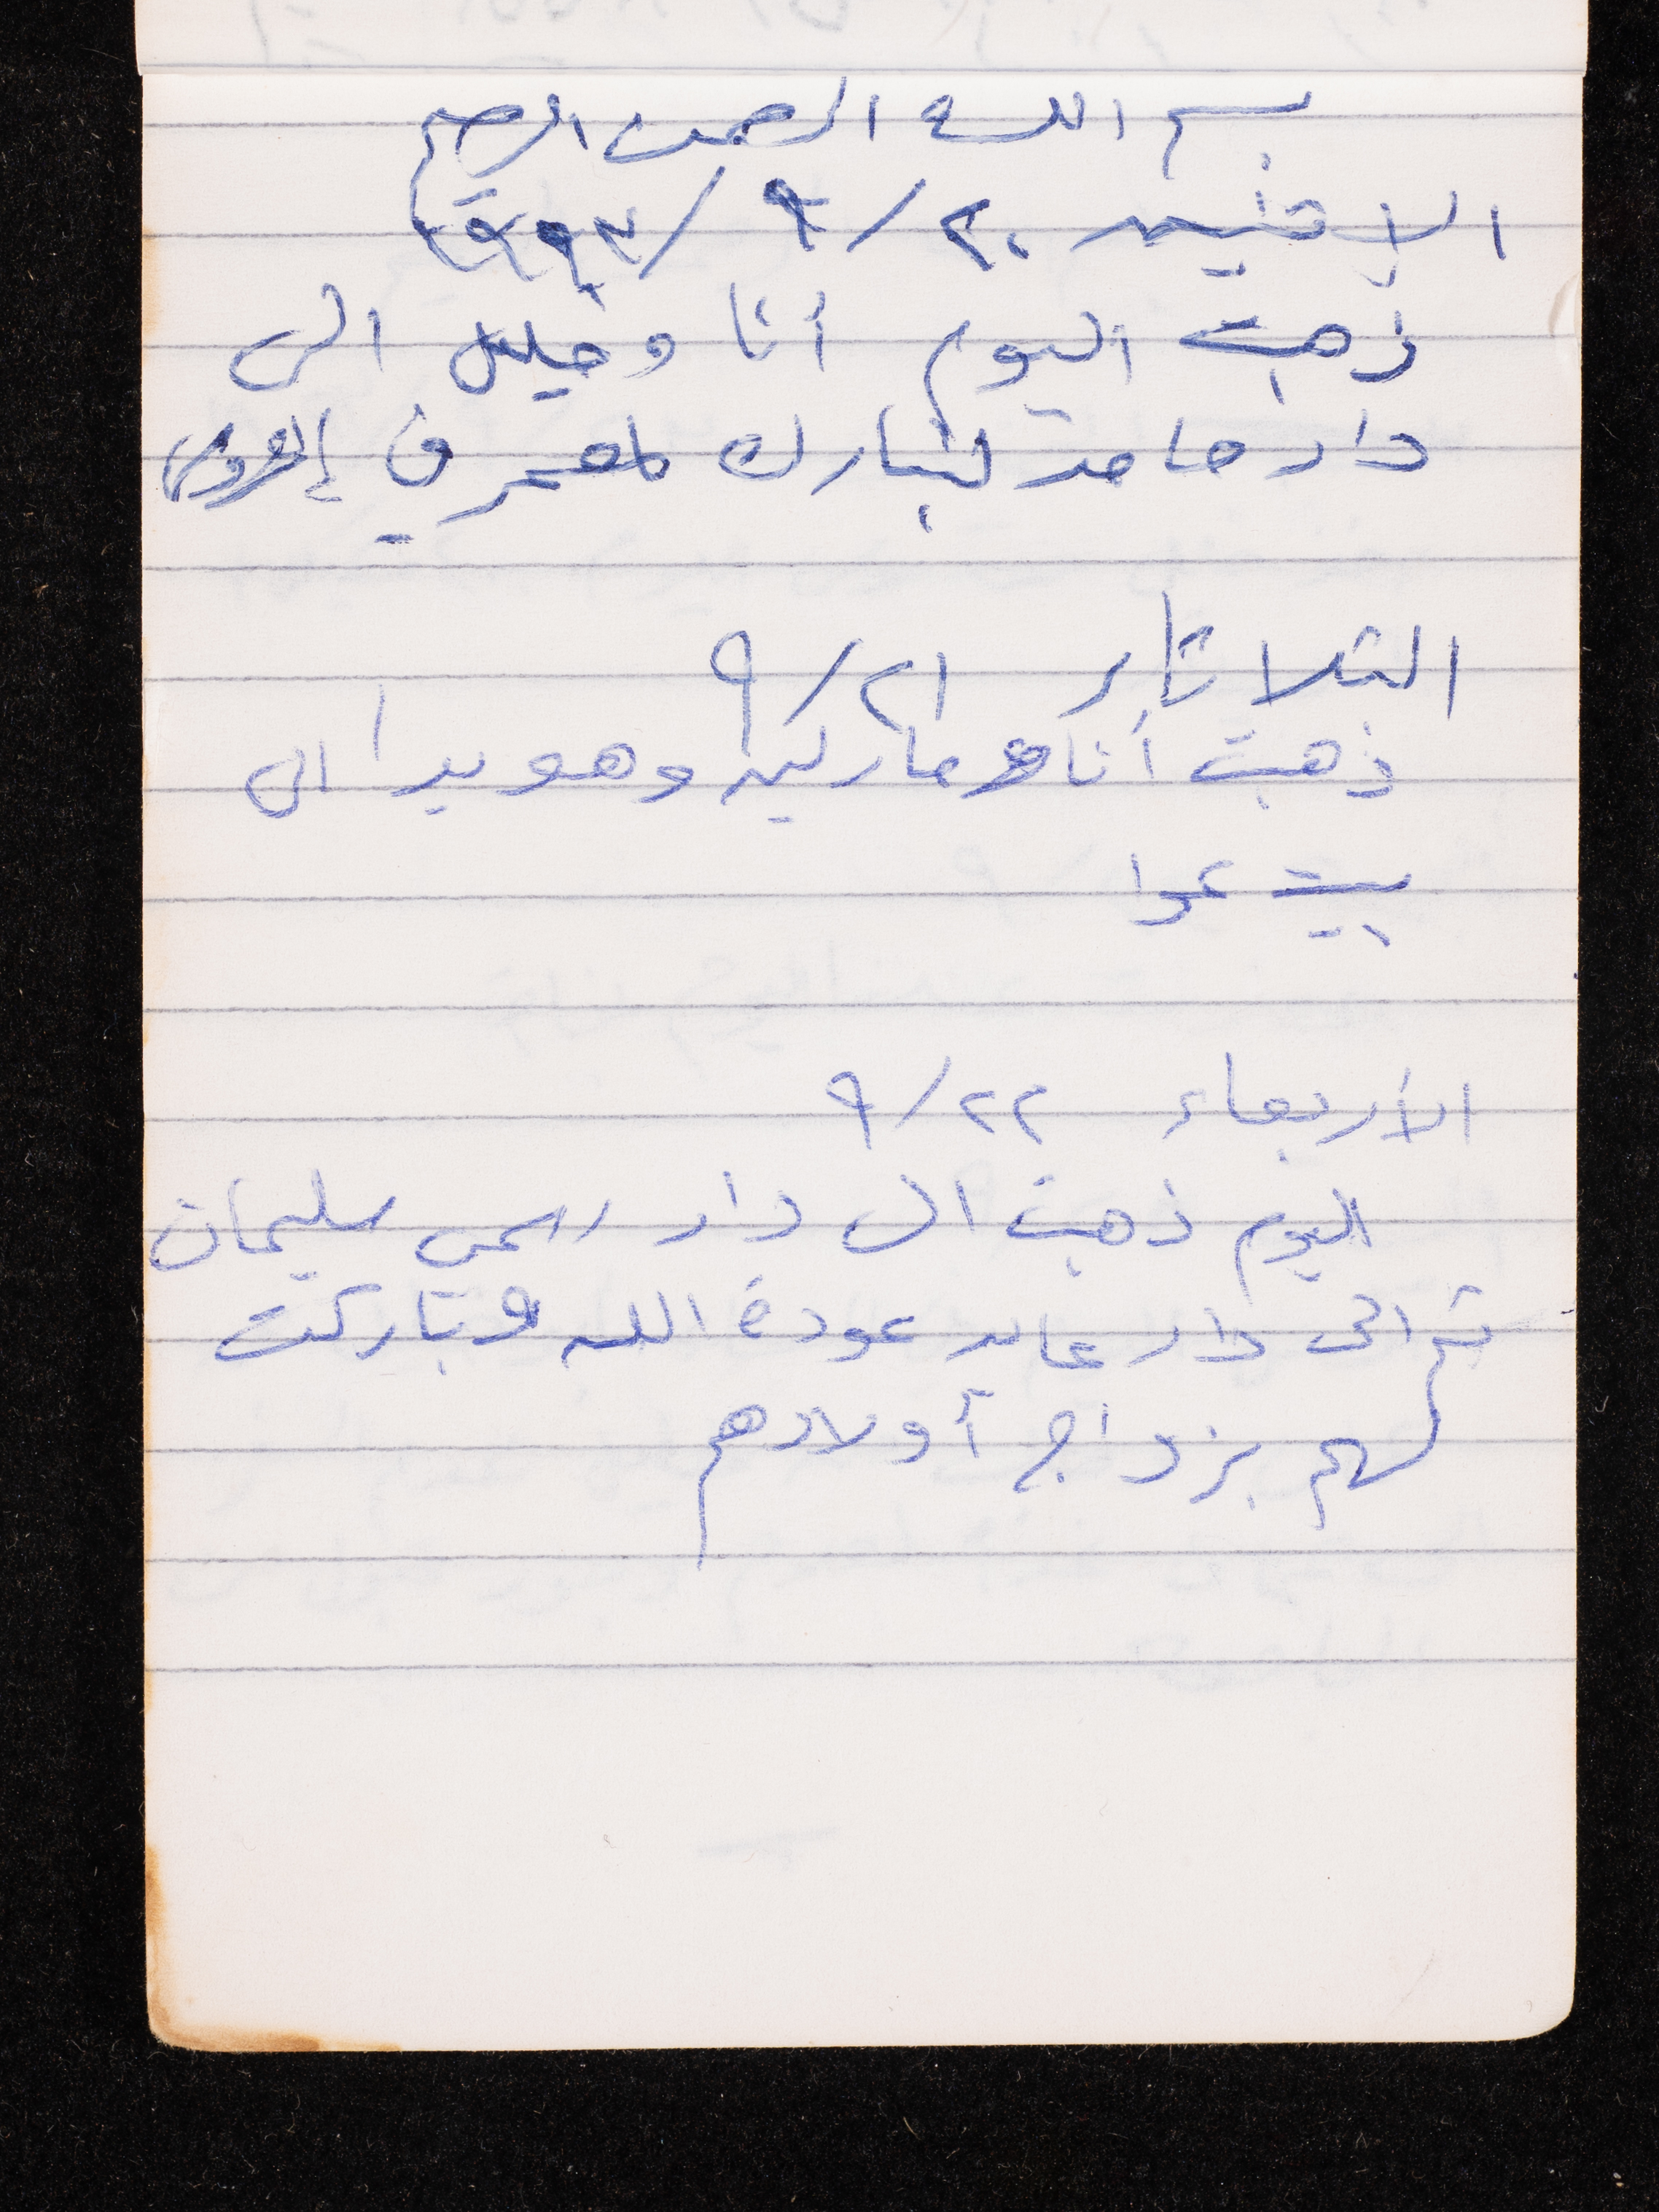 بسم الله الرحمن الرحيم
الاثنين ٢٠/٩/١٩٩٣
ذهبت اليوم أنا وخليل الى
دار حامد لنبارك لمعمر في العروس
الثلاثاء ٢١/٩
ذهبت أنا وماركيه وهويدا الى
بيت عوا
الأربعاء ٢٢/٩
اليوم ذهبت الى دار رسمي سليمان
ثم الى دار عايد عودة الله وباركت
لهم بزواج أولادهم